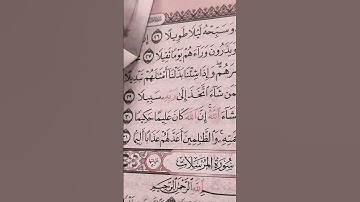 وَسَبِّحْهُ لَيْلًا طَوِيلًا ٢٦
وَيَذَرُونَ وَرَآءَهُمْ يَوْمًا ثَقِيلًا ٢٧
ـرَهُمْ وَإِذَا شِئْنَا بَدَّلْنَآ أَمْثَٰلَهُمْ تَبْدِيلًا
فَمَن شَآءَ ٱتَّخَذَ إِلَىٰ رَبِّهِۦ سَبِيلًا ٢٩
شَآءَ ٱللَّهُ إِنَّ ٱللَّهَ كَانَ عَلِيمًا حَكِيمًا ٣٠
ـتِهِۦ وَٱلظَّٰلِمِينَ أَعَدَّ لَهُمْ عَذَابًا أَلِـ
سُورَةُ الْمُرْسَلَاتِ
ٱللَّهِ ٱلرَّحْمَٰنِ ٱلرَّحِيمِ